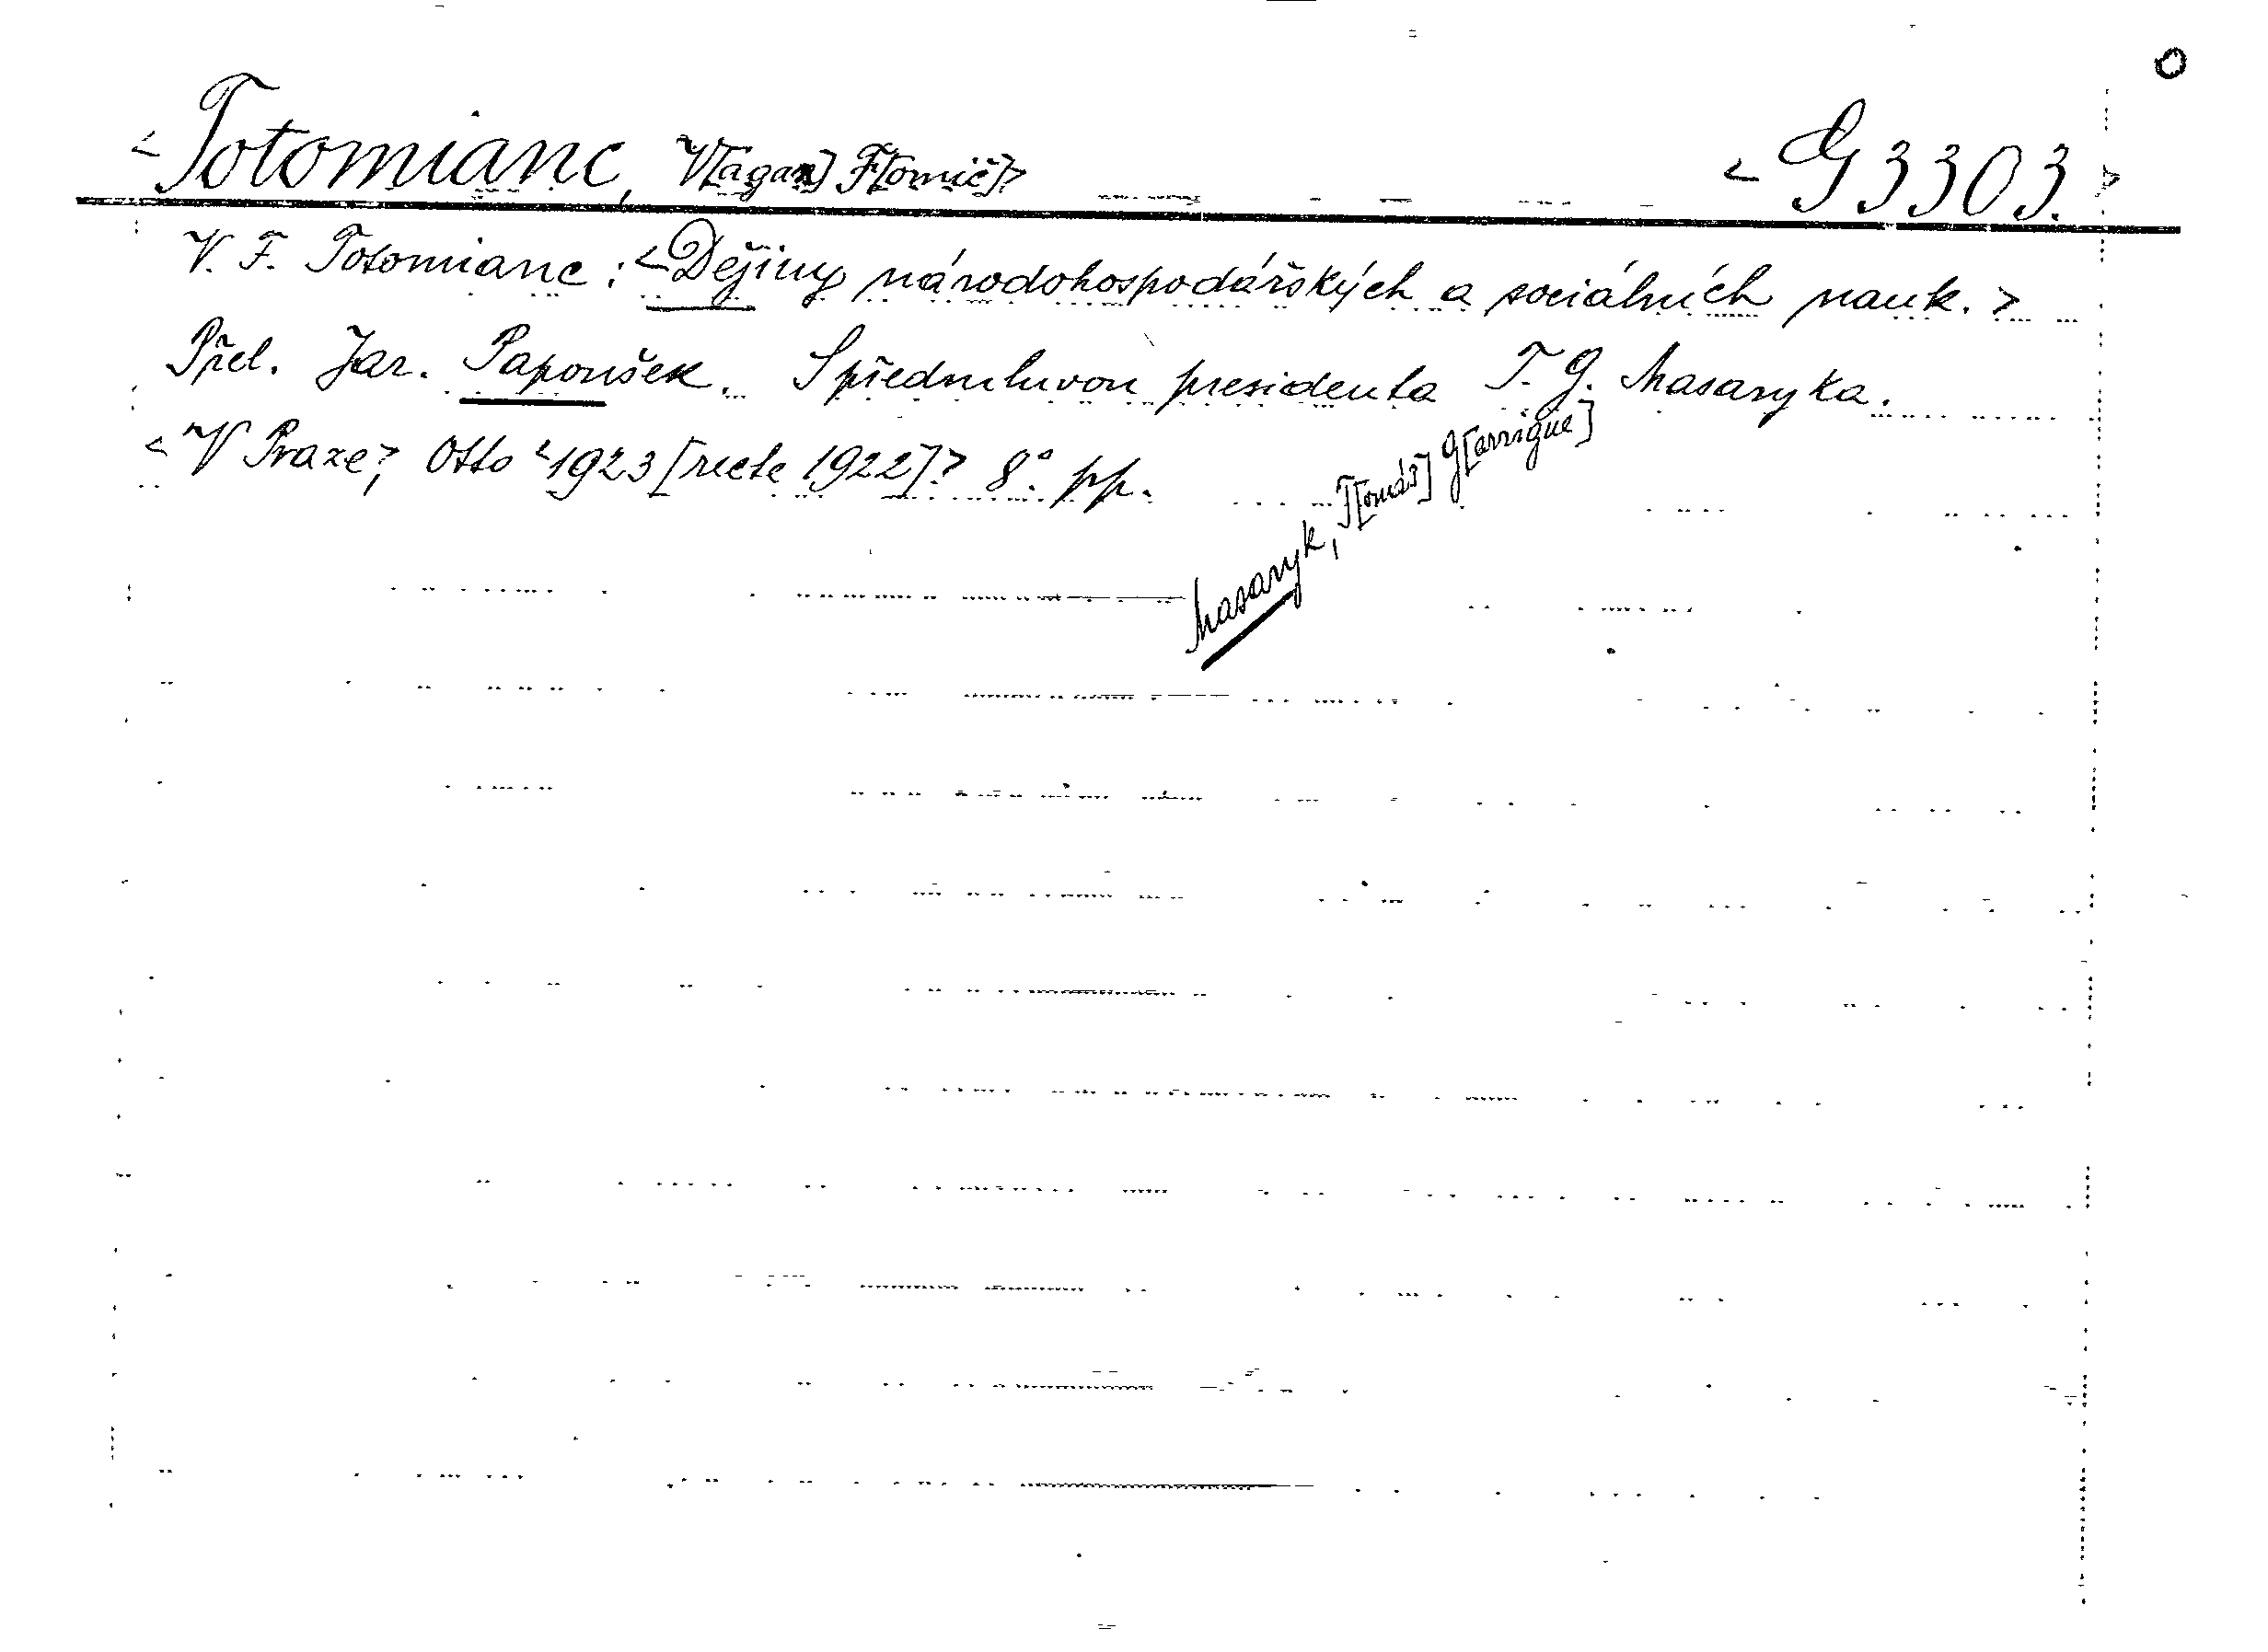 <Totomianc, V[agan] F[omič]> <G 3303.>
V. F. Totomianc: <Dějiny národohospodářských a sociálních nauk.>
Přel. Jar. Papoušek. S předmluvou presidenta T. G. Masaryka.
<V Praze>, Otto <1923 [recte 1922].> 8° pp.
Masaryk, T[omáš] G[arrigue]